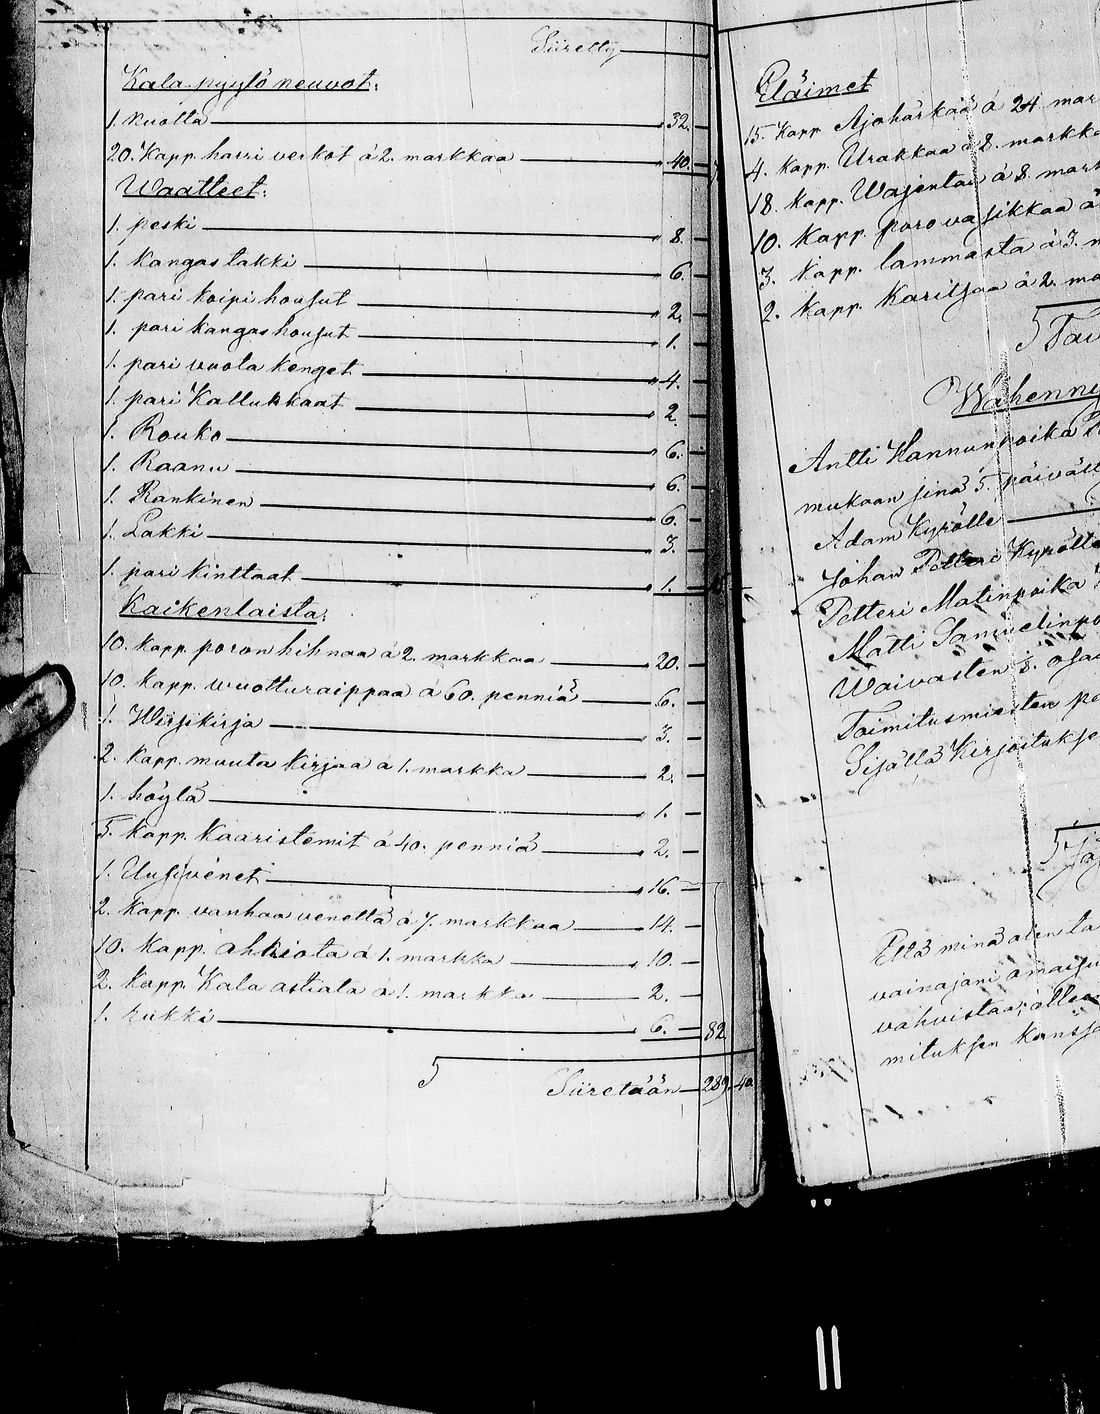 Siiretty
Kala pyytö neuvot:
1. nuotta 32. —
20. Kapp. harri verkot á 2. markkaa 40. —
Waatteet:
1. peski 8. —
1. Kangastakki 6. —
1. pari Koipi housut 2. —
1. pari Kangashousut 1. —
1. pari vuota Kenget 4. —
1. pari Kallukkaat 2. —
1. Rouko 6. —
1. Raanu 6. —
1. Rankinen 6. —
1. Lakki 3. —
1. pari Kinttaat 1. —
Kaikenlaista:
10. Kapp. poron hihnaa á 2. markkaa 20. —
10. Kapp. wuotturaippaa á 60. penniä 6. —
1. Wirsikirja 3. —
2. Kapp. muuta Kirjaa á 1. markka 2. —
1. höylä 1. —
5. Kapp. Kaaristemit á 40. penniä 2. —
1. Uusivenet 16. —
2. Kapp. vanhaa venettä á 7. markkaa 14. —
10. Kapp. ahkiota á 1. markka 10. —
2. Kapp. Kala astiata á 1. markka 2. —
1. Rukki 6. — 82.
Siiretään 289. 40
Eläimet
15. Kapp. Ajohärkää á 24 mar
4. Kapp. Urakkaa á 8. markka
18. Kapp. Wajentaa á 8. mark
10. Kapp. poro vasikkaa á
3. Kapp. lammasta á 3. m
2. Kapp. Karitsaa á 2. ma
Wähenny
Antti Hannunpoika
mukaan sinä 5. päiväll
Adam Kyrölle
Johan Petteri Kyrölle
Petteri Matinpoika
Matti Samuelinpo
Waivasten 8. osa
Toimitusmiesten pa
Sisällä Kirjoitukse
Että minä olen ta
vainajani omaisu
vahvistaa, allen
mituksen Kanssa